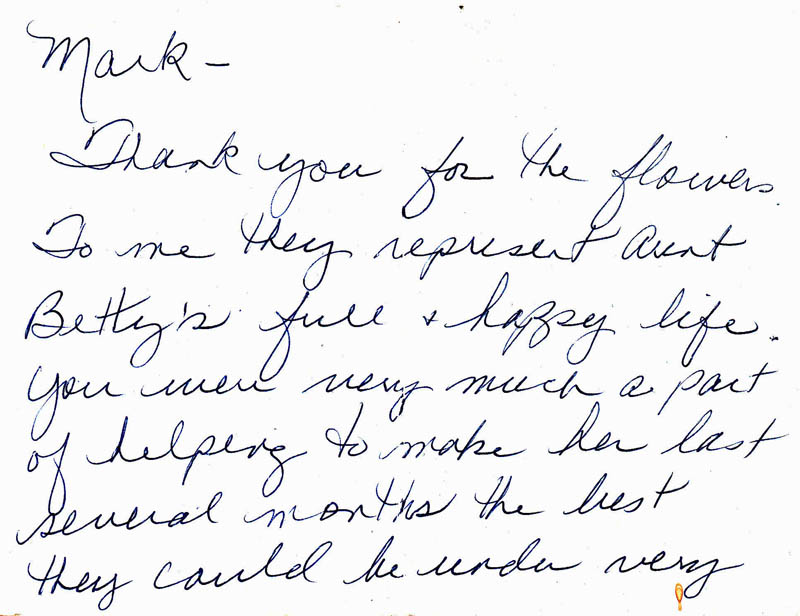 Mark –
Thank you for the flowers.
To me they represent Aunt
Betty's full + happy life.
You were very much a part
of helping to make her last
several months the best
they could be under very